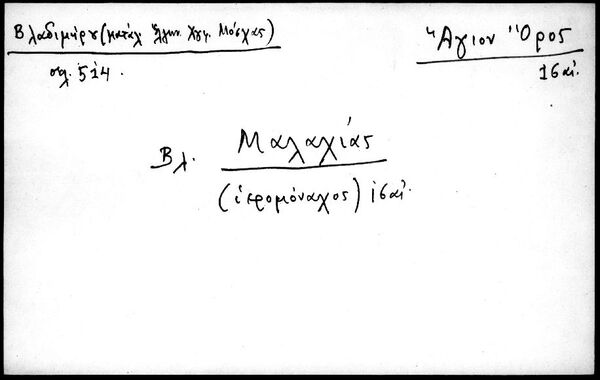 Βλαδιμήρυ (κατάλ Ἑλλην. Χγφ. Μόσχας)
σελ. 514.
Ἅγιον Ὄρος
16 αἰ.
Βλ. Μαλαχίας
(ἱερομόναχος) 16 αἰ.